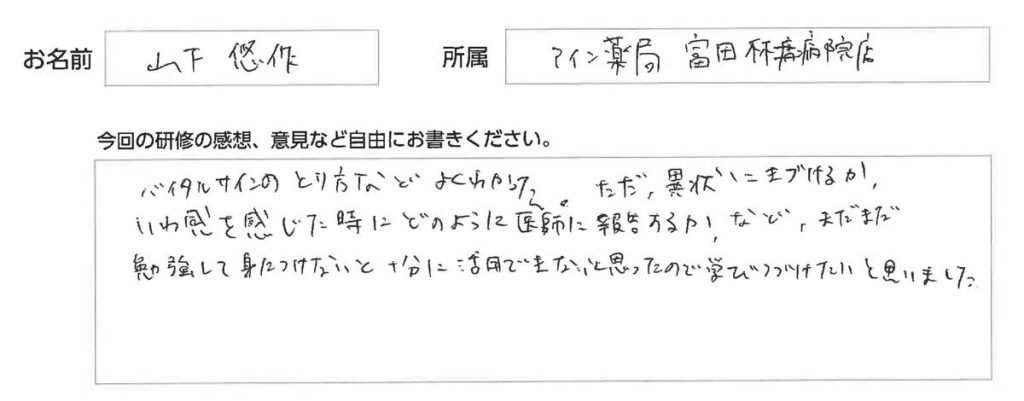 お名前 山下 悠作 所属 アイン薬局 富田林病院店
今回の研修の感想、意見など自由にお書きください。
バイタルサインのとり方などよくわかった。ただ,異状に気づけるか,
いわ感を感じた時にどのように医師に報告するか,など,まだまだ
勉強して身につけないと十分に活用できないと思ったので学びつづけたいと思いました